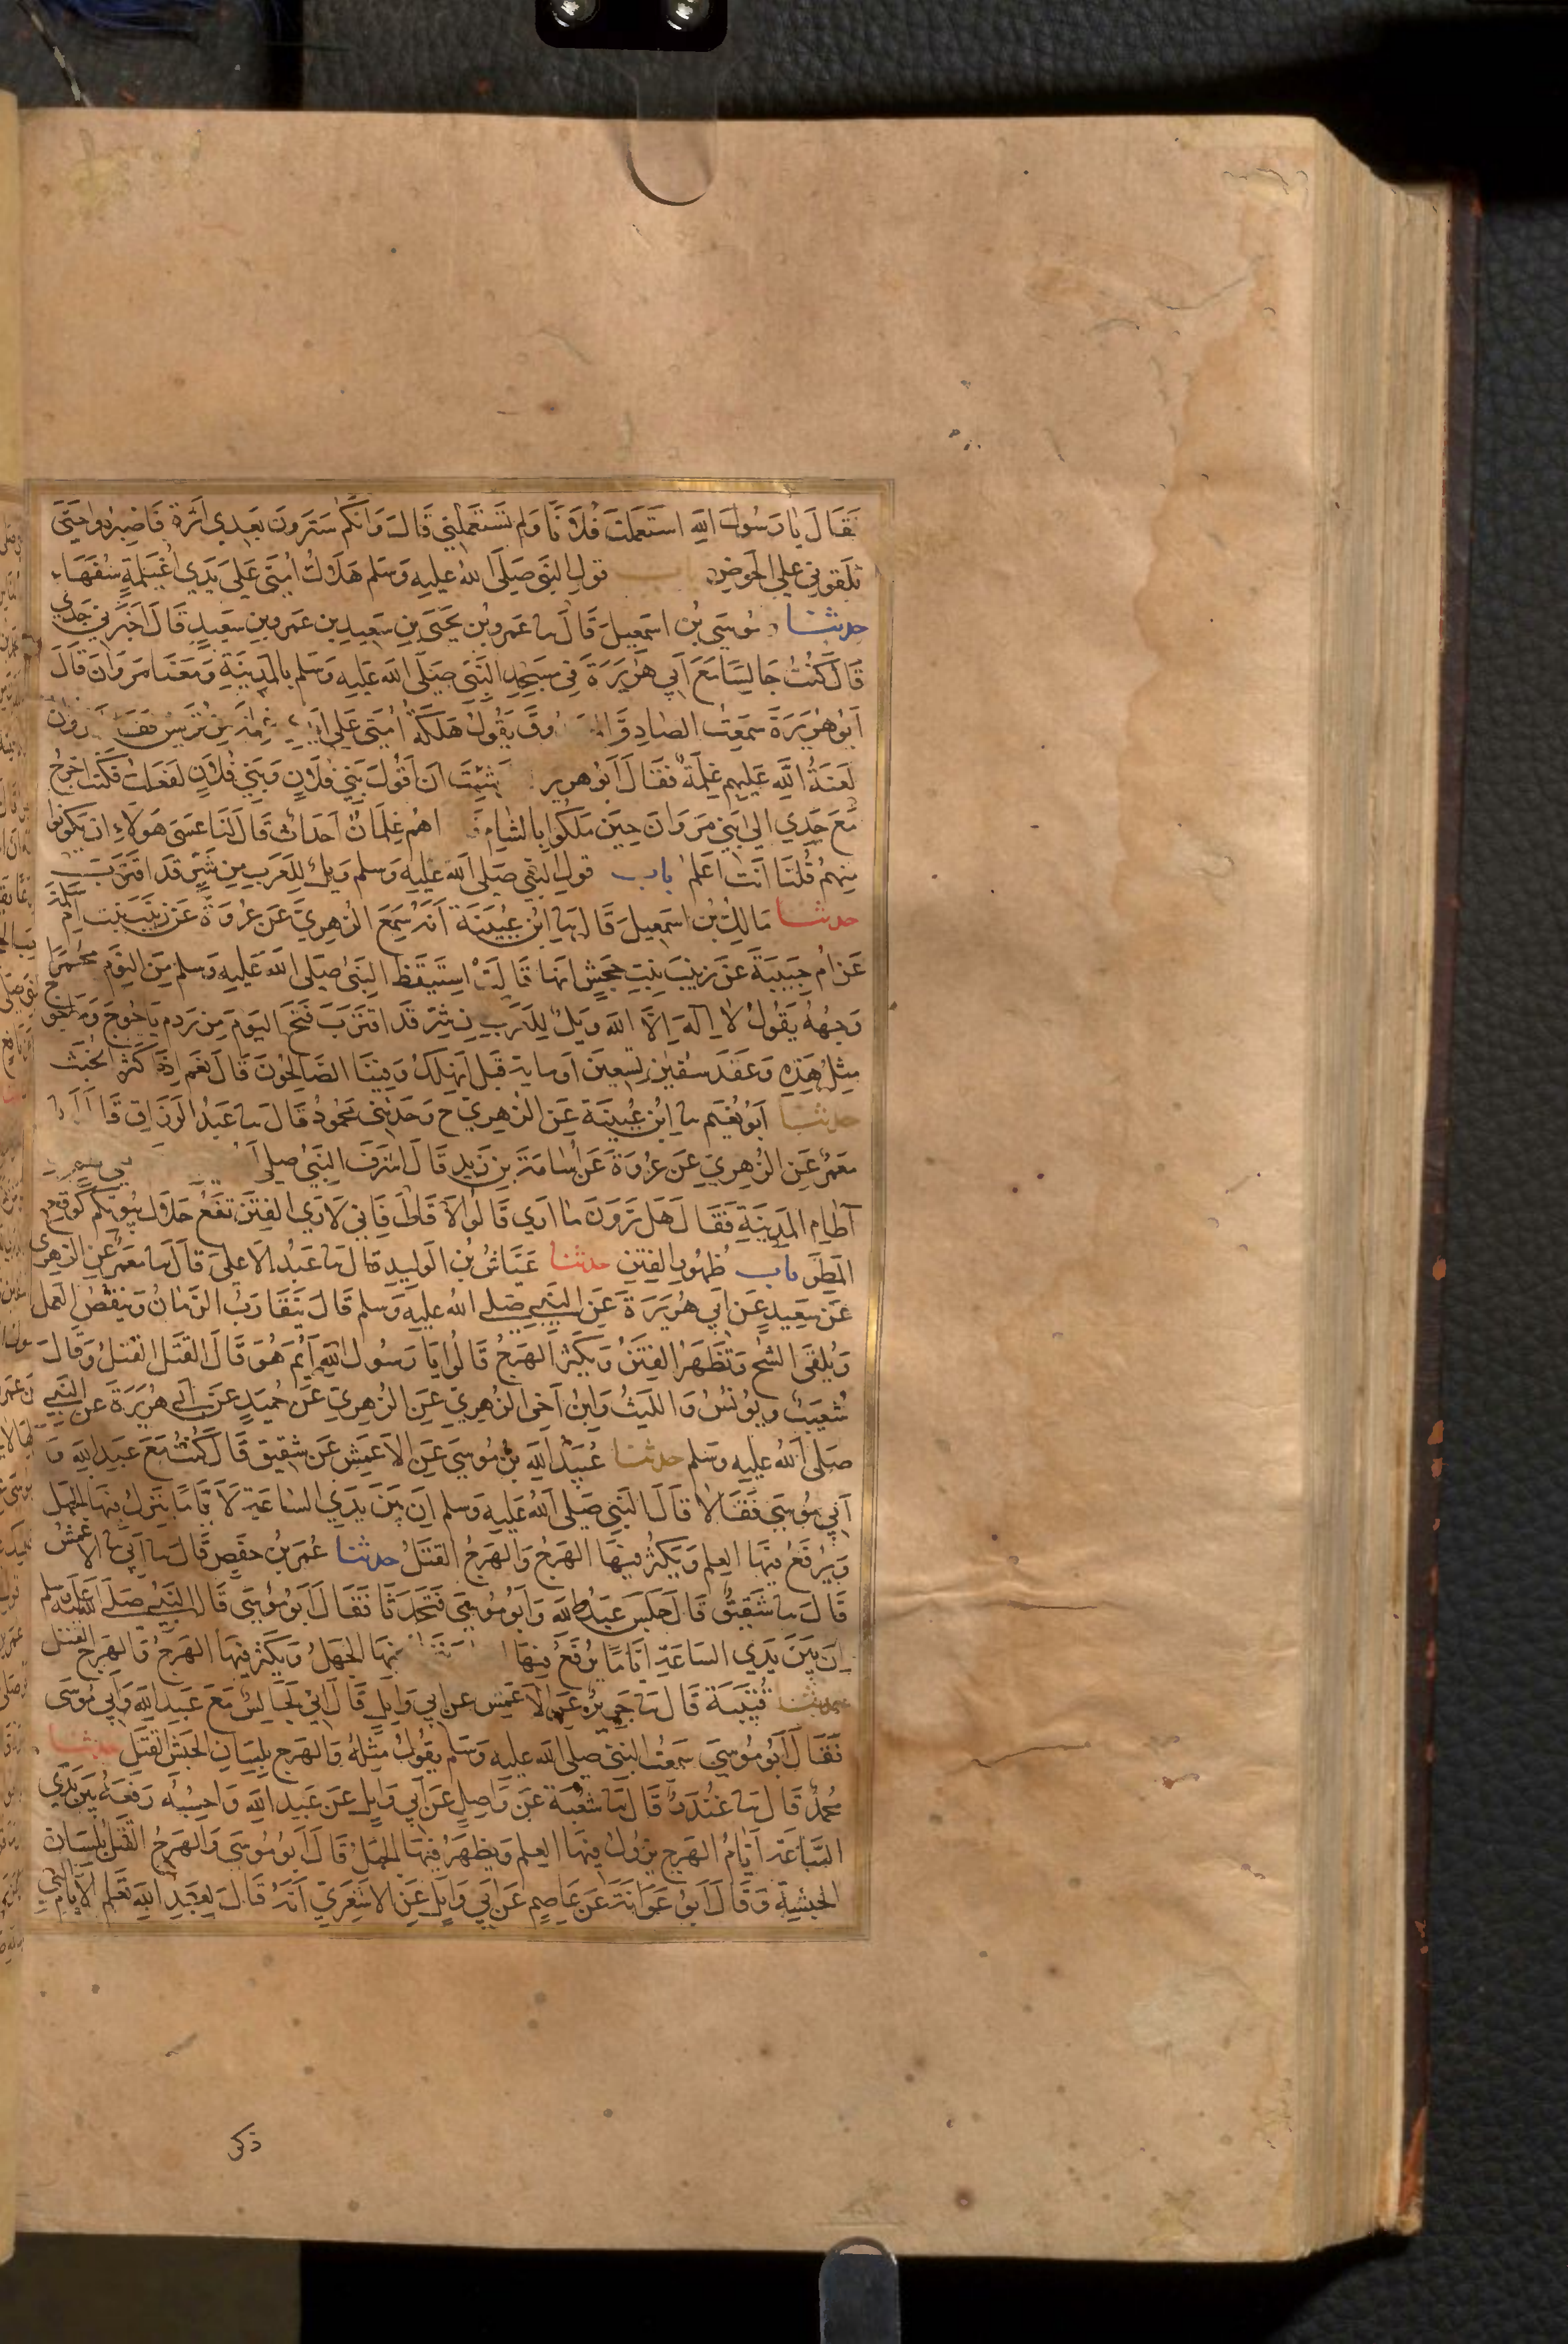 فَقَالَ يَا رَسُولَ اللهِ اسْتَعْمَلْتَ فُلَانًا وَلَم تَسْتَعْمِلْنِي قَالَ وَانَّكُم سَتَرَوْنَ بَعْدِي اثَرَةً فَاصْبِرُوا حَتَّى
تَلْقَونِي عَلَى الحَوْضِ باب قَولِ النَّبِي صَلَّى اللهُ عَلَيهِ وَسَلم هَلَاكُ امَّتِي عَلَى يَدَي اُغَيْلِمَةٍ سُفَهَاء
حدثنا مُوسَى بْنُ اسْمَعِيلَ قَالَ سا عَمرو بْن يَحْيَى بنِ سَعِيدِ بن عَمرو بنِ سَعِيدٍ قَالَ اخْبَرَنِي جَدِّي
قَالَ كُنْتُ جَالِسًا مَعَ اَبِي هُرَيْرَةَ فِي مَسْجِدِ النَّبِي صَلَّى اللهُ عَلَيهِ وَسَلم بِالْمَدِينَةِ وَمَعَنَا مَرْوَانُ قَالَ
اَبُو هُرَيْرَةَ سَمِعْتُ الصَّادِقَ وقَ يَقُولُ هَلَكَةُ اُمَّتِي عَلَى غِلْمَةٍ مِنْ قُرَيْشٍ مَروَان
لَعْنَةُ اللهِ عَلَيهِم غِلْمَةً فَقَالَ اَبُو هرير شِئْتَ اَن اَقُولَ بَنِي فُلَانٍ وَبَنِي فُلَانٍ لَفَعَلْتُ فَكُنْتُ اخْرُجُ
مَعَ جَدِّي الَى بَنِي مَرْوَانَ حِيْنَ مَلَكُوا بِالشَّامِ اهُم غِلْمَانًا احْدَاثًا قَالَ لَنَا عَسَى هَوُلَاءِ ان يَكُونُوا
مِنهُم قُلْنَا اَنْتَ اعْلَم باب قَولِ النَّبي صَلى اللهُ عَلَيهِ وَسلم وَيْلٌ لِلعَرَبِ مِن شَرٍّ قَد اقتَرَبَ
حدثنا مَالِكُ بْنُ اسْمَعِيلَ قَالَ سا ابْنُ عُيَيْنَةَ اَنَّهُ سَمِعَ الزهْرِيَّ عَن عُرْوَةَ عَن زَيْنَبَ بِنْتِ امِ سَلَمَةَ
عَن امِ حَبِيبَةَ عَن زَيْنَبَ بِنْتِ جَحْشٍ انهَا قَالَتْ اسْتَيْقَظَ النَّبيُ صَلى اللهُ عَلَيهِ وَسلم مِنَ النَّوْمِ مُحْمَرًّا
وَجْهُهُ يَقُولُ لَا الَهَ الَّا الله وَيْلٌ لِلْعَرَبِ مِنْ شَرٍّ قَدِ اقتَرَبَ فُتِحَ اليَوْمَ مِن رَدمِ يَاجُوجَ وَمَاجُوجَ
مِثْلُ هَذِهِ وَعَقَدَ سُفْيَنُ تِسْعِينَ اَو مايةً قِيْلَ انَهْلَكُ وَفِيْنَا الصَّالِحُونَ قَالَ نَعَم اِذَا كَثُرَ الخُبثُ
حدثنا اَبُو نُعَيم سا ابْنُ عُيَيْنَةَ عَنِ الزهْرِيّ ح وَحَدَثَنِي مَحْمُودٌ قَالَ سا عَبْدُ الرَّزَاقِ قَالَ
مَعْمَرٌ عَنِ الزهْرِيّ عَن عُرْوَةَ عَن اُسَامَةَ بنِ زَيْدٍ قَالَ اشْرَفَ النَّبِيُّ صَلى
آطَامِ المَدِينَةِ فَقَالَ هَل تَرَوْنَ مَا ارَى قَالُوا لَا قَالَ فَانِّي لَارَى الفِتَنَ تَقَعُ خِلَالَ بُيُوتِكُم كَوَقْعِ
المَطَرِ باب ظُهُورِ الفِتَنِ حدثنا عَيَّاشُ بْنُ الوَلِيدِ قَالَ سا عَبْدُ الاعْلَى قَالَ سا مَعْمَرٌ عَنِ الزهْرِي
عَن سَعِيدٍ عَن اَبِي هُرَيْرَةَ عَنِ النَّبِي صَلى اللهُ عَلَيهِ وَسَلم قَالَ يَتَقَارَبُ الزَّمَانُ وَيَنْقُصُ العَمَلُ
وَيُلْقَى الشُّحُّ وَتَظْهَرُ الفِتَنُ وَيَكْثُرُ الهَرْجُ قَالُوا يَا رَسُولَ اللهِ اَيُّمَ هُوَ قَالَ القَتلُ القَتلُ وَقَالَ
شُعَيْبٌ وَيُونُسُ وَاللَّيْثُ وَابْنُ اَخِي الزهْرِيّ عَنِ الزهْرِيّ عَن حُمَيْدٍ عَن ابِي هُرَيْرَةَ عَن النَّبِي
صَلى اللهُ عَلَيهِ وَسَلم حدثنا عُبَيْدُ اللهِ بْنُ مُوسَى عَنِ الاعْمَشِ عَن شَقِيقٍ قَالَ كُنْتُ مَعَ عَبدِ اللهِ وَ
اَبِي مُوسَى فَقَالَا قَالَ النَّبِي صَلى اللهُ عَلَيهِ وَسَلم اِنَّ بَيْنَ يَدَيِ السَّاعَةِ لَايَّامًا يَنْزِلُ فِيهَا الجَهْلُ
وَيُرْفَعُ فِيهَا العِلمُ وَيَكْثُرُ فِيهَا الهَرْجُ وَالهَرْجُ القَتلُ حدثنا عُمَرُ بْنُ حَفْصٍ قَالَ سا اَبِي سا الاعْمَشُ
قَالَ سا شَقِيقٌ قَالَ جَلَسَ عَبْدُ اللهِ وَاَبُو مُوسَى فَتَحَدَّثَا فَقَالَ اَبُو مُوسَى قَالَ النَّبِي صَلى اللهُ عَلَيهِ وَسَلم
اِنَّ بَيْنَ يَدَيِ السَّاعَةِ ايَّامًا يُرْفَعُ فِيهَا فِيهَا الجَهْلُ وَيَكْثُرُ فِيهَا الهَرْجُ وَالهَرْجُ القَتلُ
حدثنا قُتَيْبَةَ قَالَ سا جَرِيرٌ عَنِ الاعْمَشِ عَن ابِي وَايِلٍ قَالَ انِّي لَجَالِسٌ مَعَ عَبْدِ اللهِ وَابِي مُوسَى
فَقَالَ اَبُو مُوسَى سَمِعْتُ النَّبِيَّ صَلى اللهُ عَلَيهِ وَسَلم يَقُولُ مِثْلَهُ وَالهَرْجُ بِلِسَانِ الحَبَشِ القَتلُ حدثنا
مُحَمَّدٌ قَالَ سا غُنْدَرٌ قَالَ سا شُعْبَةُ عَن وَاصِلٍ عَن اَبِي وَايِلٍ عَن عَبْدِ اللهِ وَاحْسِبُهُ رَفَعَهُ بَيْنَ يَدَيِ
السَّاعَةِ اَيَّامُ الهَرْجِ يَزُولُ فِيهَا العِلمُ وَيَظْهَرُ فِيهَا الجَهْلُ قَالَ اَبُو مُوسَى وَالهَرْجُ القَتلُ بِلِسَانِ
الحَبَشِيَّةِ وَقَالَ اَبُو عَوَانَةَ عَن عَاصِمٍ عَن اَبِي وَايِلٍ عَنِ الاشْعَرِيِّ اَنَّهُ قَالَ لِعَبْدِ اللهِ تَعْلَم الايَّامَ الَّتِي
ذكر